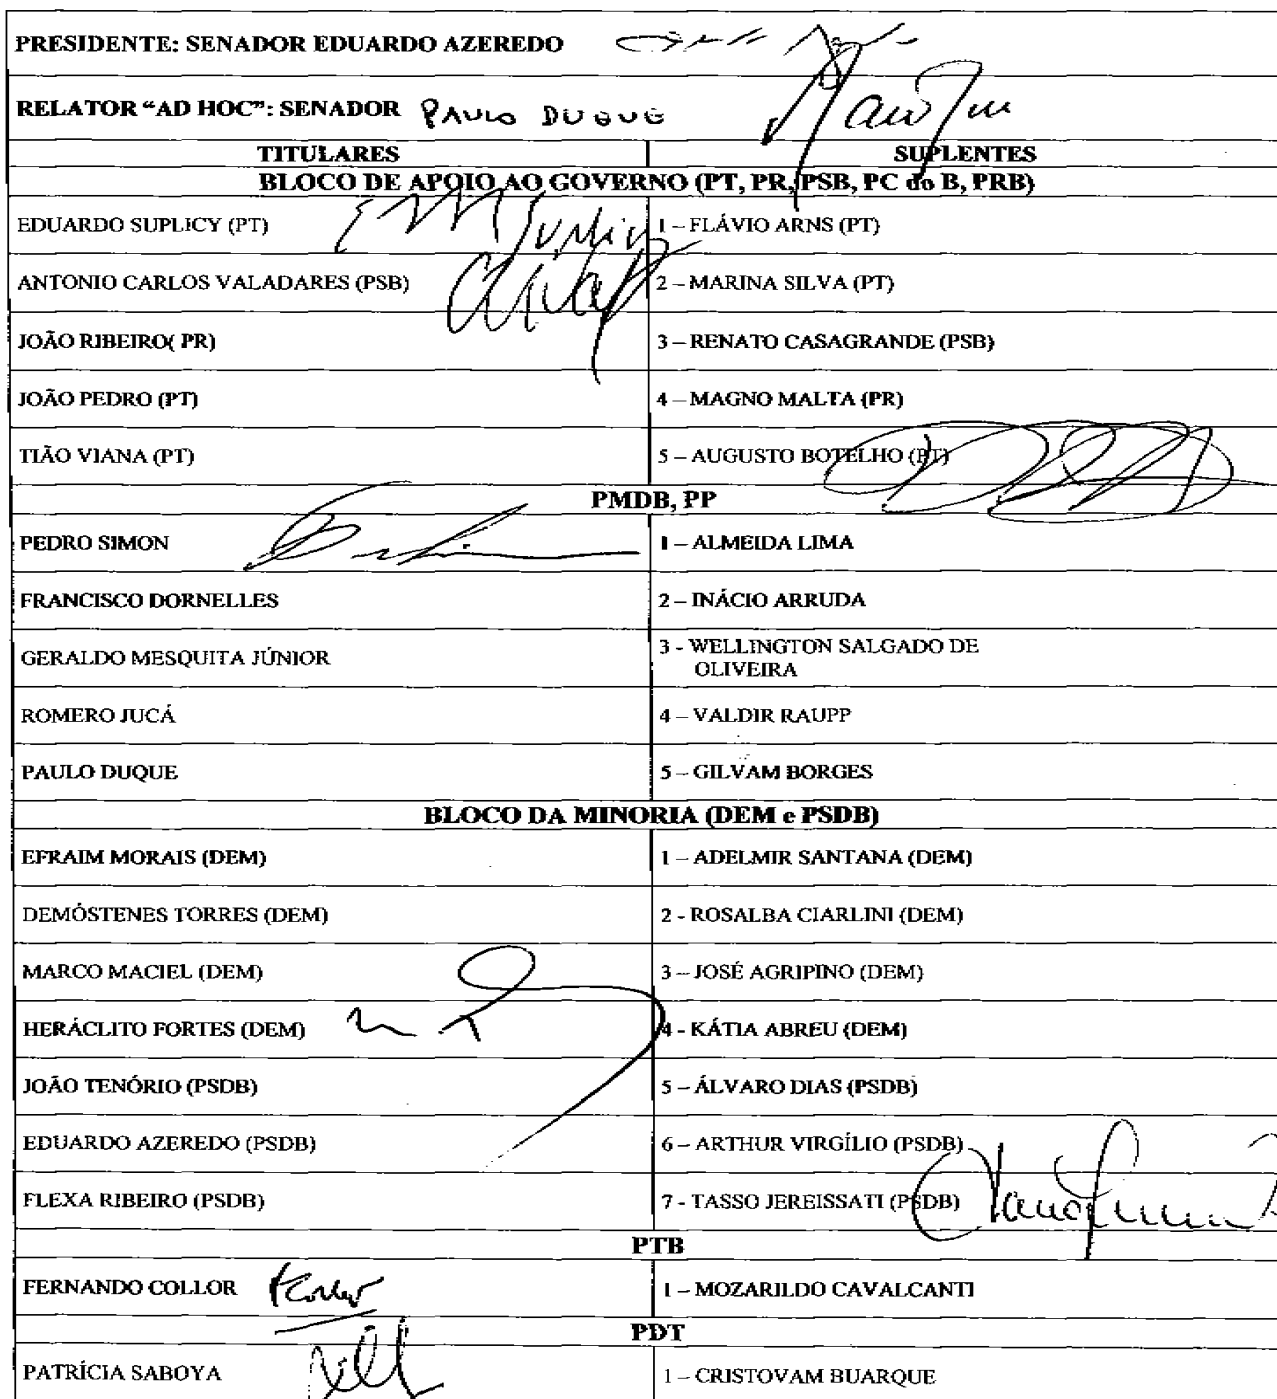 PRESIDENTE: SENADOR EDUARDO AZEREDO
RELATOR “AD HOC”: SENADOR PAULO DUQUE
TITULARES SUPLENTES
BLOCO DE APOIO AO GOVERNO (PT, PR, PSB, PC do B, PRB)
EDUARDO SUPLICY (PT) 1 – FLÁVIO ARNS (PT)
ANTONIO CARLOS VALADARES (PSB) 2 – MARINA SILVA (PT)
JOÃO RIBEIRO( PR) 3 – RENATO CASAGRANDE (PSB)
JOÃO PEDRO (PT) 4 – MAGNO MALTA (PR)
TIÃO VIANA (PT) 5 – AUGUSTO BOTELHO (PT)
PMDB, PP
PEDRO SIMON 1 – ALMEIDA LIMA
FRANCISCO DORNELLES 2 – INÁCIO ARRUDA
GERALDO MESQUITA JÚNIOR 3 - WELLINGTON SALGADO DE
OLIVEIRA
ROMERO JUCÁ 4 – VALDIR RAUPP
PAULO DUQUE 5 – GILVAM BORGES
BLOCO DA MINORIA (DEM e PSDB)
EFRAIM MORAIS (DEM) 1 – ADELMIR SANTANA (DEM)
DEMÓSTENES TORRES (DEM) 2 - ROSALBA CIARLINI (DEM)
MARCO MACIEL (DEM) 3 – JOSÉ AGRIPINO (DEM)
HERÁCLITO FORTES (DEM) 4 - KÁTIA ABREU (DEM)
JOÃO TENÓRIO (PSDB) 5 – ÁLVARO DIAS (PSDB)
EDUARDO AZEREDO (PSDB) 6 – ARTHUR VIRGÍLIO (PSDB)
FLEXA RIBEIRO (PSDB) 7 - TASSO JEREISSATI (PSDB)
PTB
FERNANDO COLLOR 1 – MOZARILDO CAVALCANTI
PDT
PATRÍCIA SABOYA 1 – CRISTOVAM BUARQUE